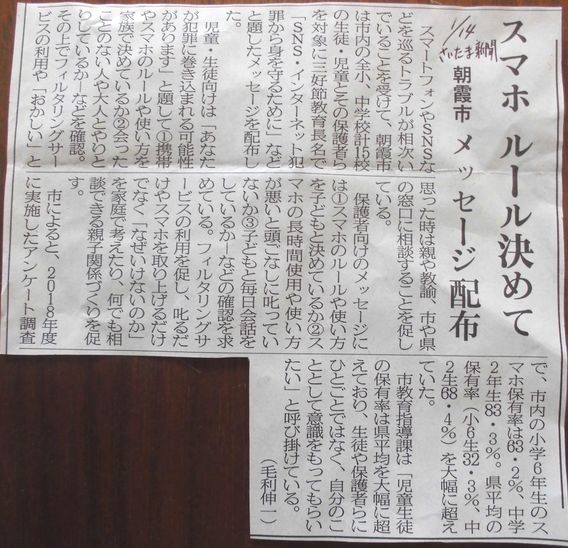 1/14
さいたま新聞
スマホ ルール決めて
朝霞市 メッセージ配布
スマートフォンやSNSな
どを巡るトラブルが相次い
でいることを受けて、朝霞市
は市内の全小、中学校計15校
の生徒・児童とその保護者ら
を対象に三好節教育長名で
「SNS・インターネット犯
罪から身を守るために」など
と題したメッセージを配布し
た。
児童・生徒向けは「あなた
が犯罪に巻き込まれる可能性
があります」と題して①携帯
やスマホのルールや使い方を
家族で決めているか②会った
ことのない人や大人とやりと
りしているか―などを確認。
その上でフィルタリングサー
ビスの利用や「おかしい」と
思った時は親や教諭、市や県
の窓口に相談することを促し
ている。
保護者向けのメッセージに
は①スマホのルールや使い方
を子どもと決めているか②ス
マホの長時間使用や使い方
が悪いと頭ごなしに叱ってい
ないか③子どもと毎日会話を
しているか―などの確認を求
めている。フィルタリングサ
ービスの利用を促し、叱るだ
けやスマホを取り上げるだけ
でなく「なぜいけないのか」
を家庭で考えたり、何でも相
談できる親子関係づくりを促
す。
市によると、2018年度
に実施したアンケート調査
で、市内の小学6年生のス
マホ保有率は63・2％、中学
2年生83・3％。県平均の
保有率（小6生32・3％、中
2生68・4％）を大幅に超え
ていた。
市教育指導課は「児童生徒
の保有率は県平均を大幅に超
えており、生徒や保護者らに
ひとごとではなく、自分のこ
ととして意識をもってもらい
たい」と呼び掛けている。
（毛利伸一）